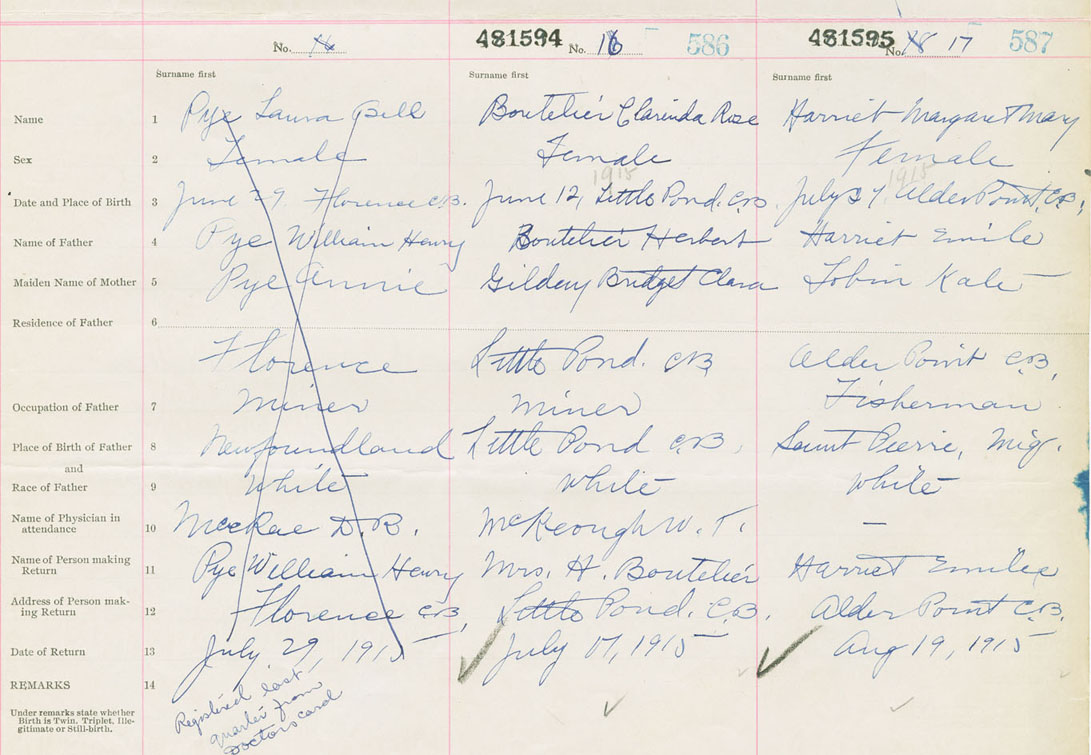 No. 16 481594 No. 16 586 481595 No. 18 17 587
Surname first Surname first Surname first
Name 1 Pye Laura Bell Boutelier Clarinda Rose Harriet Margaret Mary
Sex 2 Female Female Female
1915 1915
Date and Place of Birth 3 June 29. Florence C.B. June 12, Little Pond. C.B. July 27, Alder Point, C.B,
Name of Father 4 Pye William Henry Boutelier Herbert Harriet Emile
Maiden Name of Mother 5 Pye Annie Bridget Clara Tobin Kate
Residence of Father 6
Florence Little Pond. C.B Alder Point C.B,
Occupation of Father 7 Miner Miner Fisherman
Place of Birth of Father 8 Newfoundland Little Pond C.B. Saint Pierre, Miq.
and
Race of Father 9 White White White
Name of Physician in
attendance 10 McRae D. R. McKeough W. T. —
Name of Person making
Return 11 Pye William Henry Mrs. H. Boutelier Harriet Emile
Address of Person mak-
ing Return 12 Florence C.B, Little Pond. C.B. Alder Point C.B.
Date of Return 13 July 29, 1915 July 17, 1915 Aug 19, 1915
REMARKS 14
Under remarks state whether
Birth is Twin, Triplet, Ille-
gitimate or Still-birth.
Registered last
quarter from
Doctors card